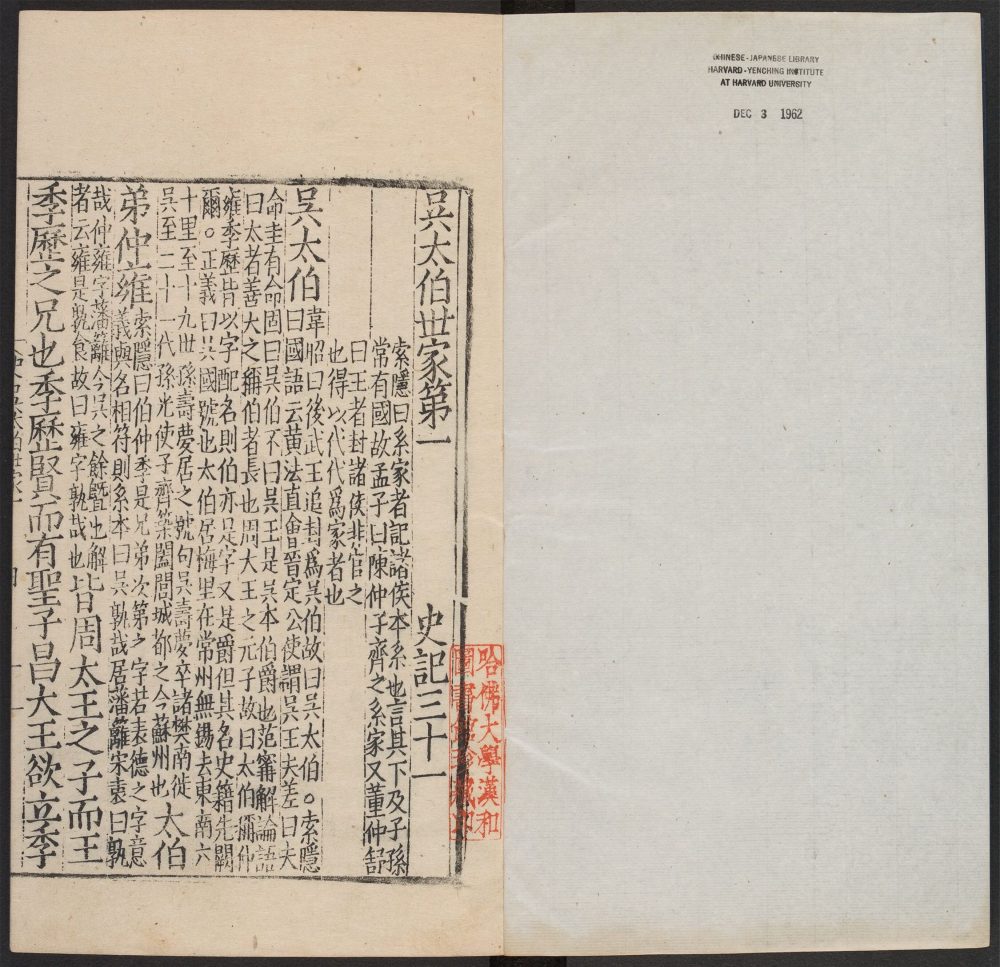 CHINESE-JAPANESE LIBRARY
HARVARD-YENCHING INSTITUTE
AT HARVARD UNIVERSITY
DEC 3 1962
哈佛大學漢和
圖書館珍藏印
吳太伯世家第一 史記三十一
索隱曰系家者記諸侯本系也言其下及子孫
常有國故孟子曰陳仲子齊之系家又董仲舒
曰王者封諸侯非官之
也得以代代爲家者也
吳太伯
韋昭曰後武王追封爲吳伯故曰吳太伯○索隱
曰國語云黄法直會晉定公使謂吳王夫差曰夫
命圭有命固曰吳伯不曰吳王是吳本伯爵也范甯解論語
曰太者善大之稱伯者長也周大王之元子故曰太伯稱仲
雍季歷皆以字配名則伯亦是字又是爵但其名史籍先闕
爾○正義曰吳國號也太伯居梅里在常州無錫去東南六
十里至十九世孫壽夢居之號句吳壽夢卒諸樊南徙
吳至二十一代孫光使子胥築闔閭城都之今蘇州也
太伯
弟仲雍
索隱曰伯仲季是兄弟次第之字若表德之字意
義與名相符則系本曰吳孰哉居藩籬宋衷曰孰
哉仲雍字藩籬今吳之餘曁也解
者云雍是孰食故曰雍字孰哉也
皆周太王之子而王
季歷之兄也季歷賢而有聖子昌大王欲立季